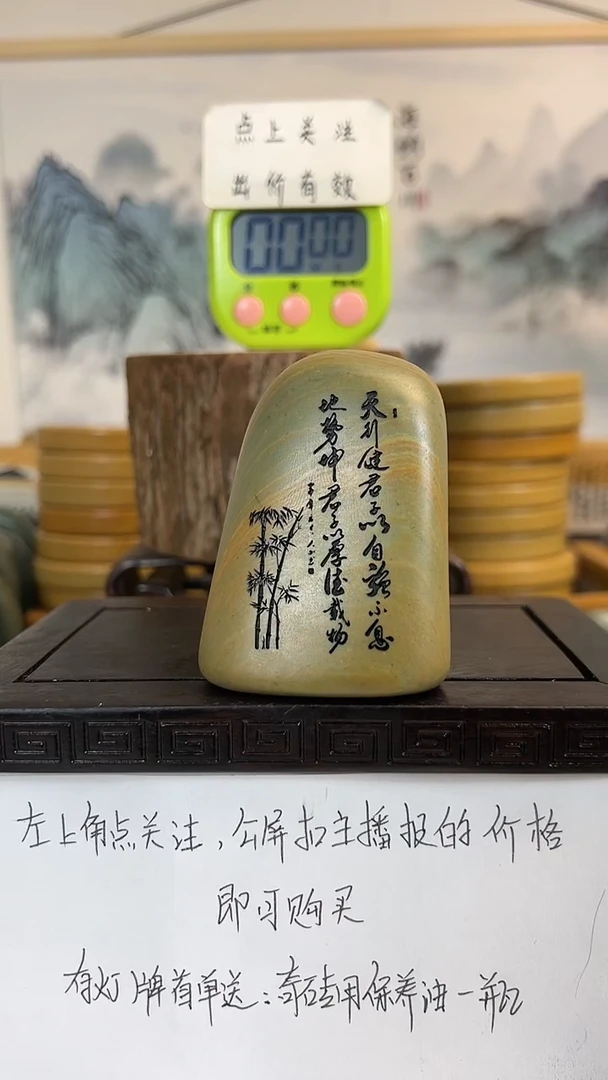 点上关注
出价有效
00:00
天行健君子以自强不息
地势坤君子以厚德载物
左上角点关注，公屏扣主播报的价格
即可购买
有灯牌首单送：奇石专用保养油一瓶